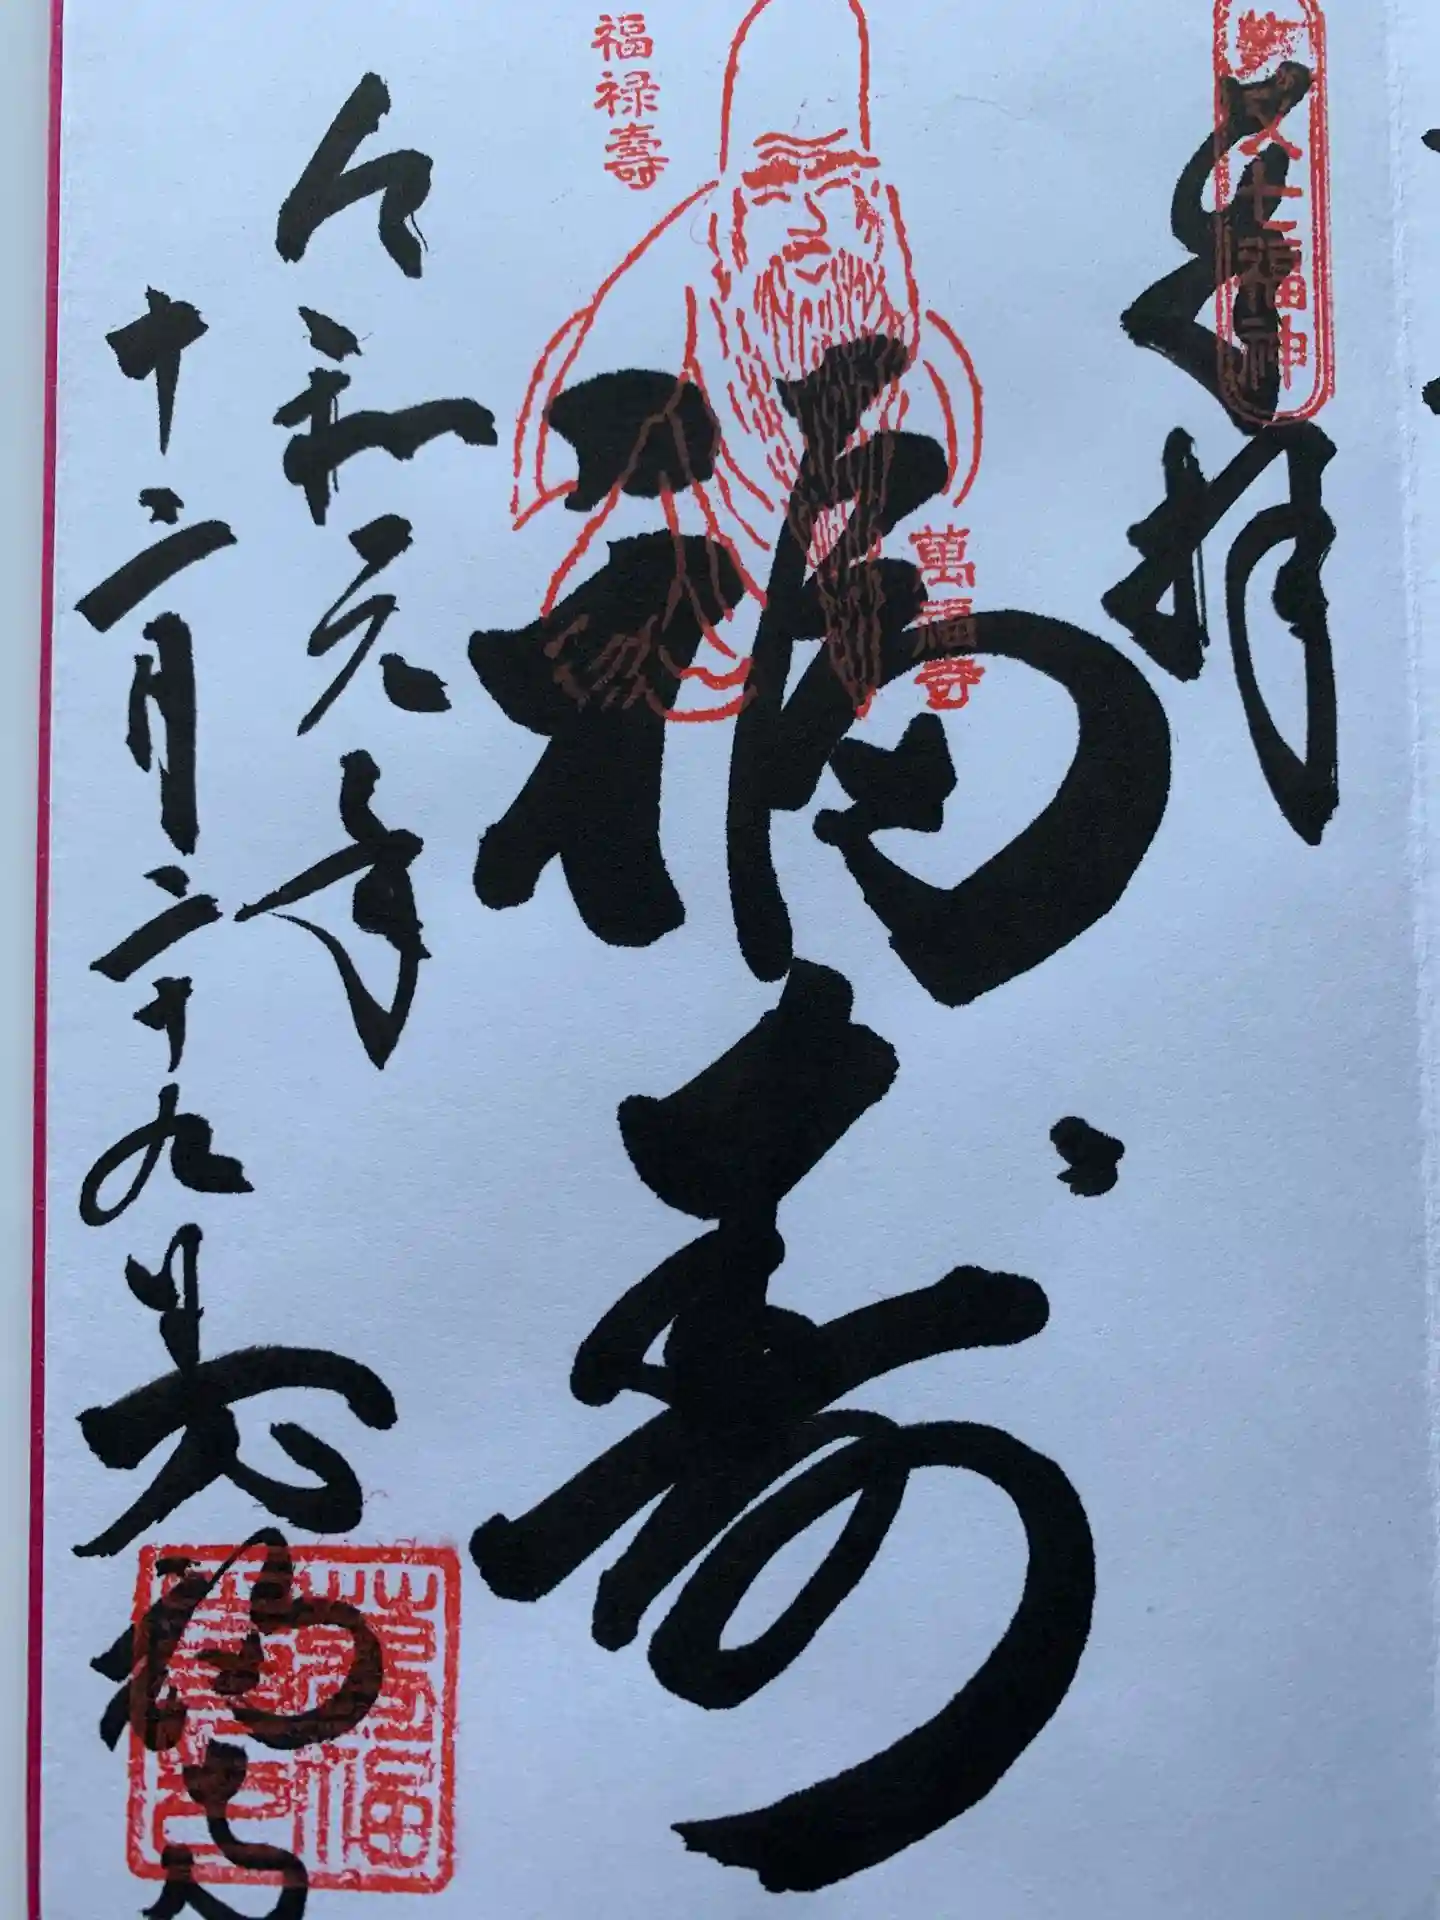 奉拝
七福神
福禄壽
萬福寺
福寿
令和元年
十二月二十九日
萬福寺